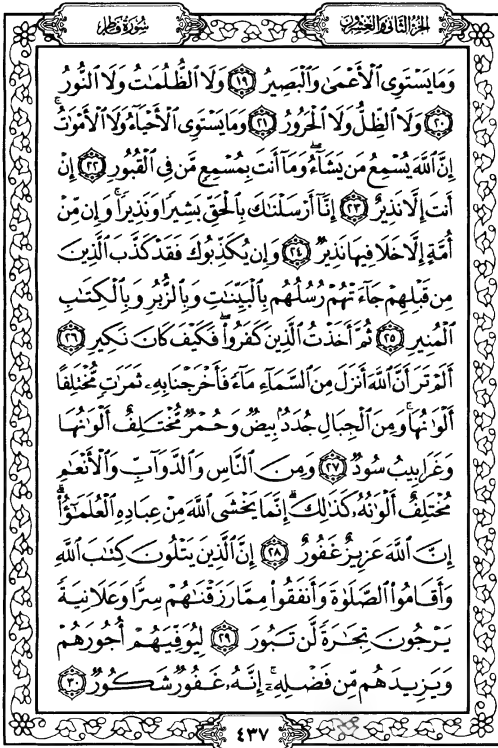 الجزء الثاني والعشرين
سورة فاطر
وَمَا يَسْتَوِى ٱلْأَعْمَىٰ وَٱلْبَصِيرُ ١٩ وَلَا ٱلظُّلُمَٰتُ وَلَا ٱلنُّورُ
٢٠ وَلَا ٱلظِّلُّ وَلَا ٱلْحَرُورُ ٢١ وَمَا يَسْتَوِى ٱلْأَحْيَآءُ وَلَا ٱلْأَمْوَٰتُ ۚ
إِنَّ ٱللَّهَ يُسْمِعُ مَن يَشَآءُ ۖ وَمَآ أَنتَ بِمُسْمِعٍ مَّن فِى ٱلْقُبُورِ ٢٢ إِنْ
أَنتَ إِلَّا نَذِيرٌ ٢٣ إِنَّآ أَرْسَلْنَٰكَ بِٱلْحَقِّ بَشِيرًا وَنَذِيرًا ۚ وَإِن مِّنْ
أُمَّةٍ إِلَّا خَلَا فِيهَا نَذِيرٌ ٢٤ وَإِن يُكَذِّبُوكَ فَقَدْ كَذَّبَ ٱلَّذِينَ
مِن قَبْلِهِمْ جَآءَتْهُمْ رُسُلُهُم بِٱلْبَيِّنَٰتِ وَبِٱلزُّبُرِ وَبِٱلْكِتَٰبِ
ٱلْمُنِيرِ ٢٥ ثُمَّ أَخَذْتُ ٱلَّذِينَ كَفَرُوا۟ ۖ فَكَيْفَ كَانَ نَكِيرِ ٢٦
أَلَمْ تَرَ أَنَّ ٱللَّهَ أَنزَلَ مِنَ ٱلسَّمَآءِ مَآءً فَأَخْرَجْنَا بِهِۦ ثَمَرَٰتٍ مُّخْتَلِفًا
أَلْوَٰنُهَا ۚ وَمِنَ ٱلْجِبَالِ جُدَدٌۢ بِيضٌ وَحُمْرٌ مُّخْتَلِفٌ أَلْوَٰنُهَا
وَغَرَابِيبُ سُودٌ ٢٧ وَمِنَ ٱلنَّاسِ وَٱلدَّوَآبِّ وَٱلْأَنْعَٰمِ
مُخْتَلِفٌ أَلْوَٰنُهُۥ كَذَٰلِكَ ۗ إِنَّمَا يَخْشَى ٱللَّهَ مِنْ عِبَادِهِ ٱلْعُلَمَٰٓؤُا۟ ۗ
إِنَّ ٱللَّهَ عَزِيزٌ غَفُورٌ ٢٨ إِنَّ ٱلَّذِينَ يَتْلُونَ كِتَٰبَ ٱللَّهِ
وَأَقَامُوا۟ ٱلصَّلَوٰةَ وَأَنفَقُوا۟ مِمَّا رَزَقْنَٰهُمْ سِرًّا وَعَلَانِيَةً
يَرْجُونَ تِجَٰرَةً لَّن تَبُورَ ٢٩ لِيُوَفِّيَهُمْ أُجُورَهُمْ
وَيَزِيدَهُم مِّن فَضْلِهِۦٓ ۚ إِنَّهُۥ غَفُورٌ شَكُورٌ ٣٠
٤٣٧